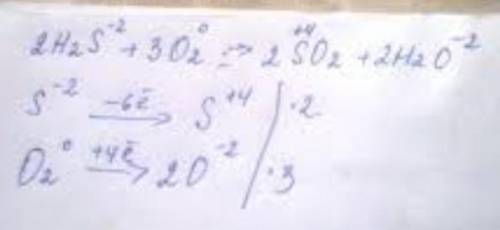 2H₂S⁻² + 3O₂⁰ => 2S⁺⁴O₂ + 2H₂O⁻²
S⁻² —6ē→ S⁺⁴ | ·2
O₂⁰ +4ē→ 2O⁻² | ·3